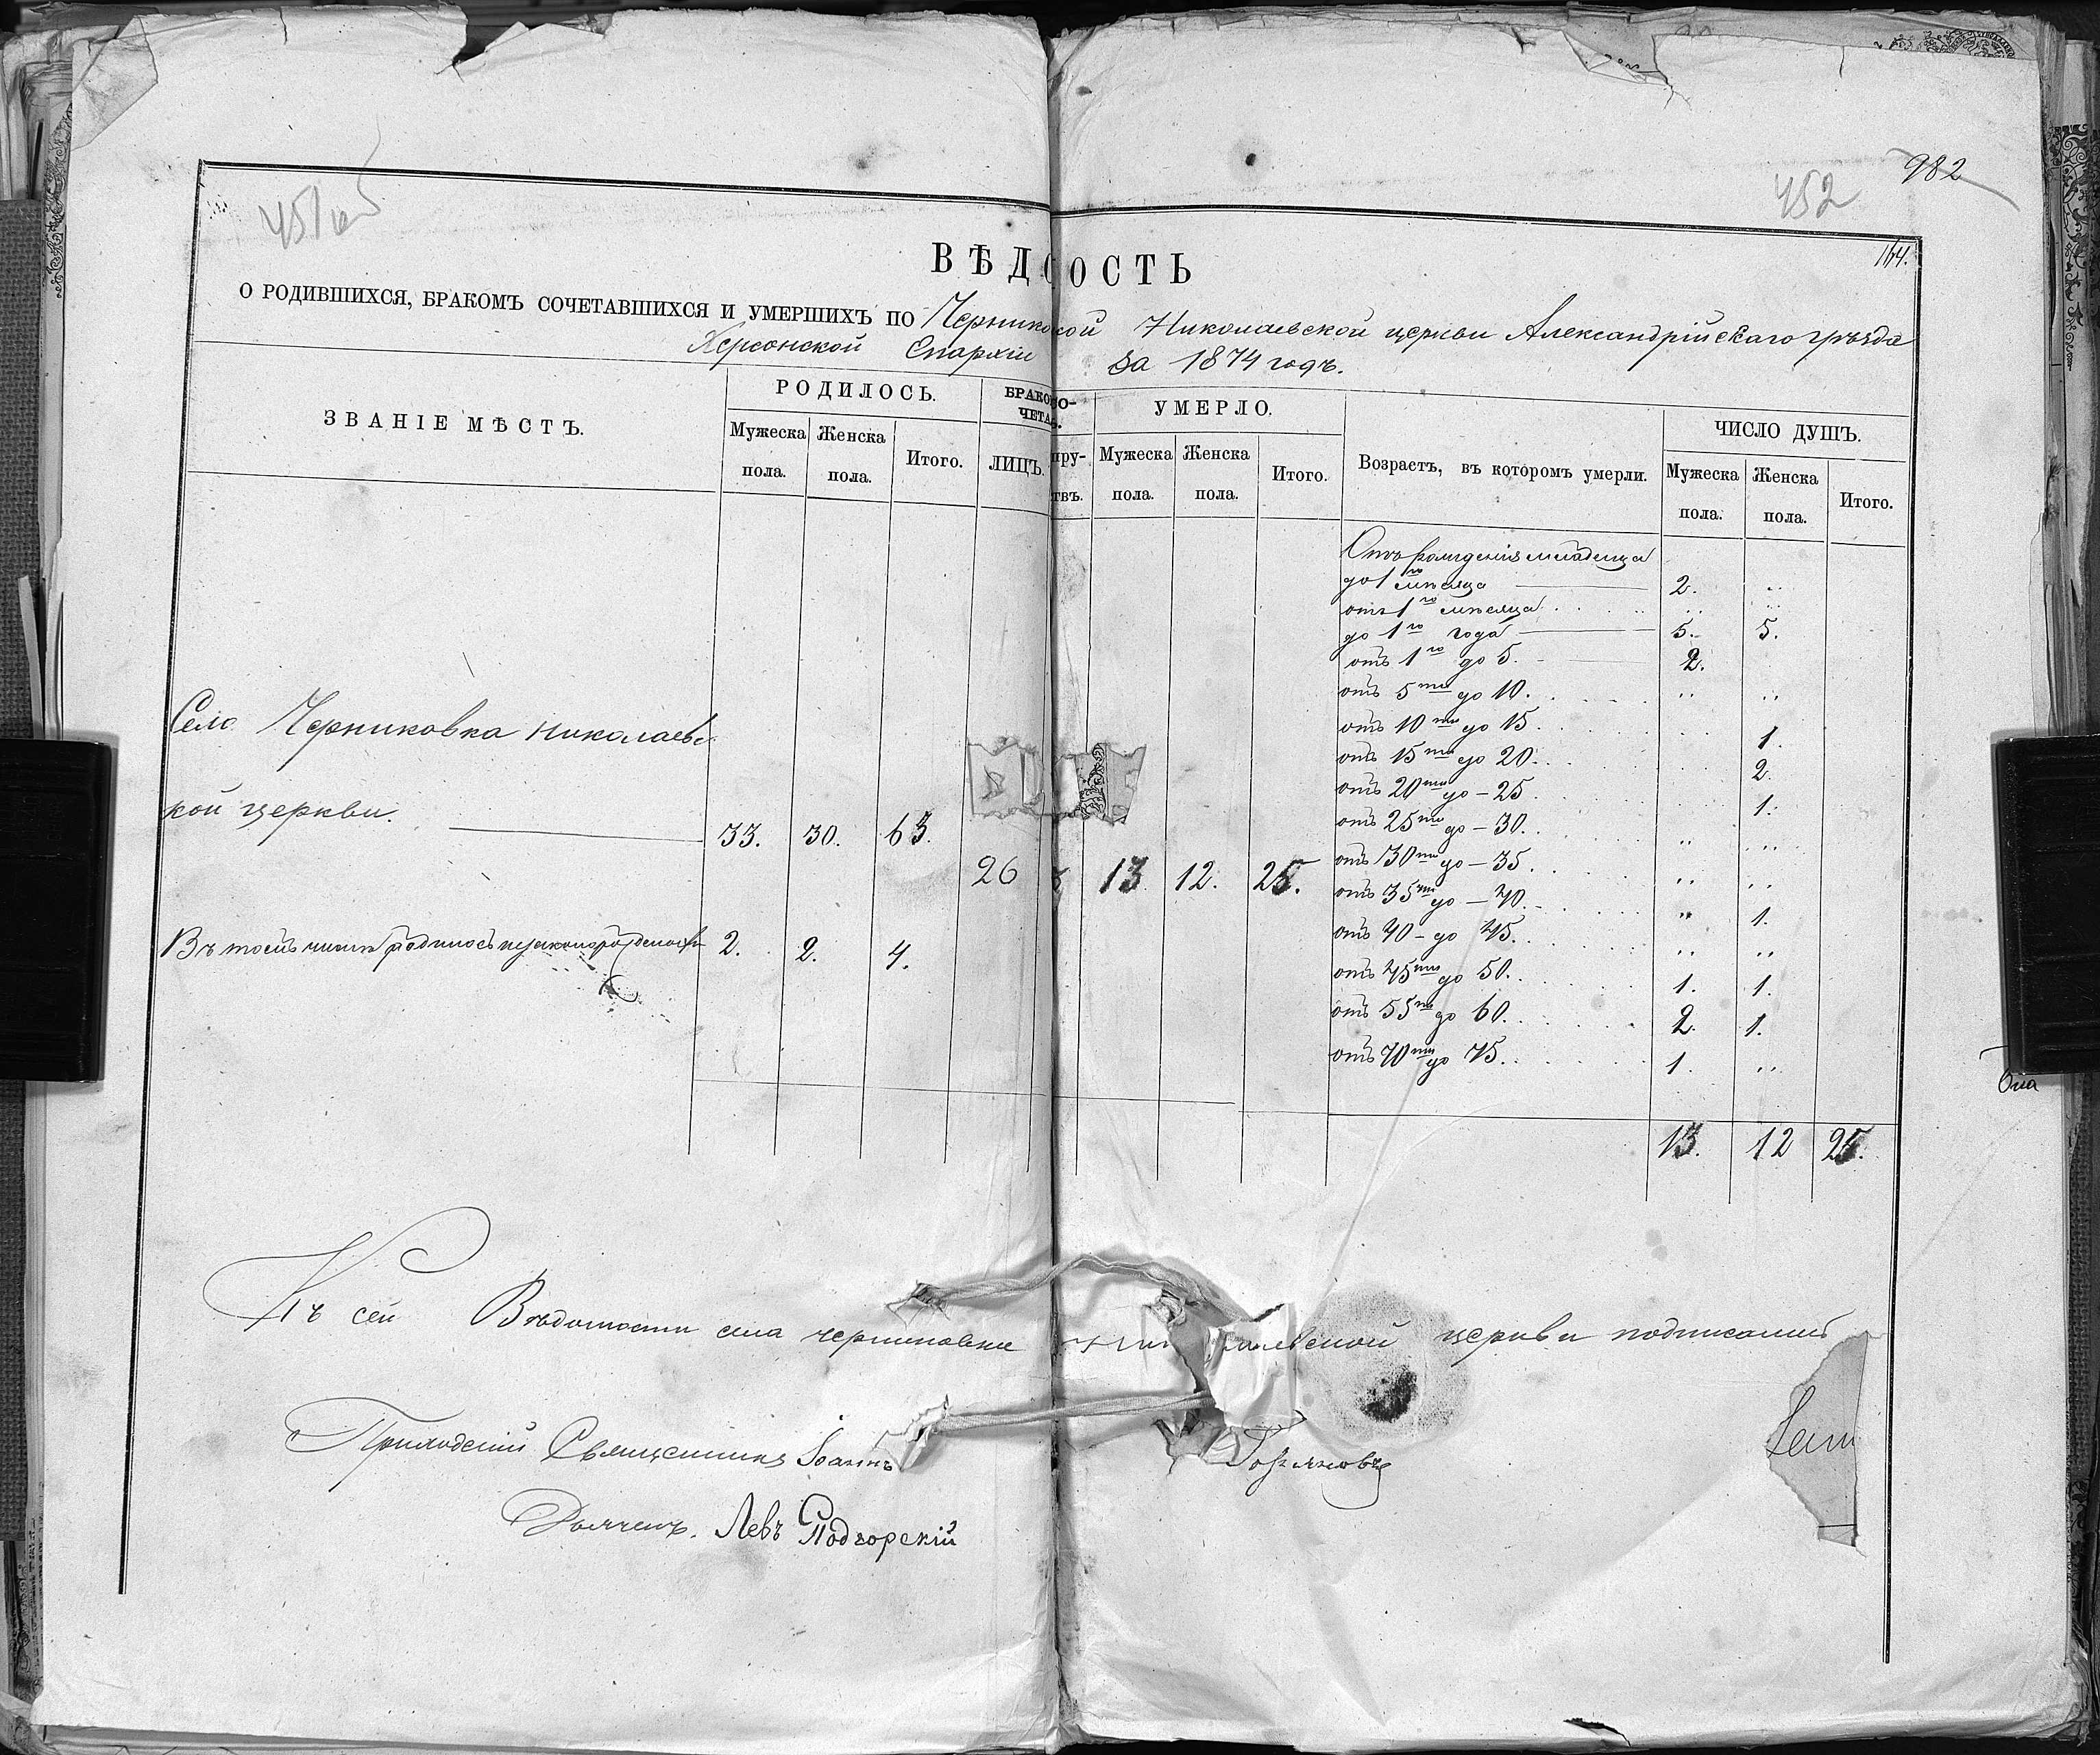 982
452
164.
ВѢДОСТЬ
О РОДИВШИХСЯ, БРАКОМЪ СОЧЕТАВШИХСЯ И УМЕРШИХЪ ПО Черников­ской Николаевской церкви Александрійскаго уѣзда
Херсонской Епархіи за 1874 годъ.
ЗВАНІЕ МѢСТЪ.
РОДИЛОСЬ.
Мужеска пола.
Женска пола.
Итого.
ЛИЦЪ.
УМЕРЛО.
Мужеска пола.
Женска пола.
Итого.
Возрастъ, въ которомъ умерли.
ЧИСЛО ДУШЪ.
Мужеска пола.
Женска пола.
Итого.
Село Черниковка Николаевс
кой церкви. 33. 30. 63. 26 13 12. 25.
Въ томъ числѣ родилось незаконорожденныхъ 2. 2. 4.
Отъ рожденія младенца
до 1го мѣсяца 2. ..
отъ 1го мѣсяца .. ..
до 1го года 5. 5.
отъ 1го до 5. 2.
отъ 5ти до 10. .. ..
отъ 10ти до 15. 1.
отъ 15ти до 20. 2.
отъ 20ти до 25. 1.
отъ 25ти до 30. .. ..
отъ 30ти до 35. .. ..
отъ 35ти до 40. .. 1.
отъ 40 до 45. .. ..
отъ 45ти до 50. 1. 1.
отъ 55ти до 60. 2. 1.
отъ 70ти до 75. 1. ..
13. 12 25.
Къ сей Вѣдомости села Черниковки церкви подписались
Приходскій Священникъ Іоаннъ
Дьячекъ. Левъ Подгорскій